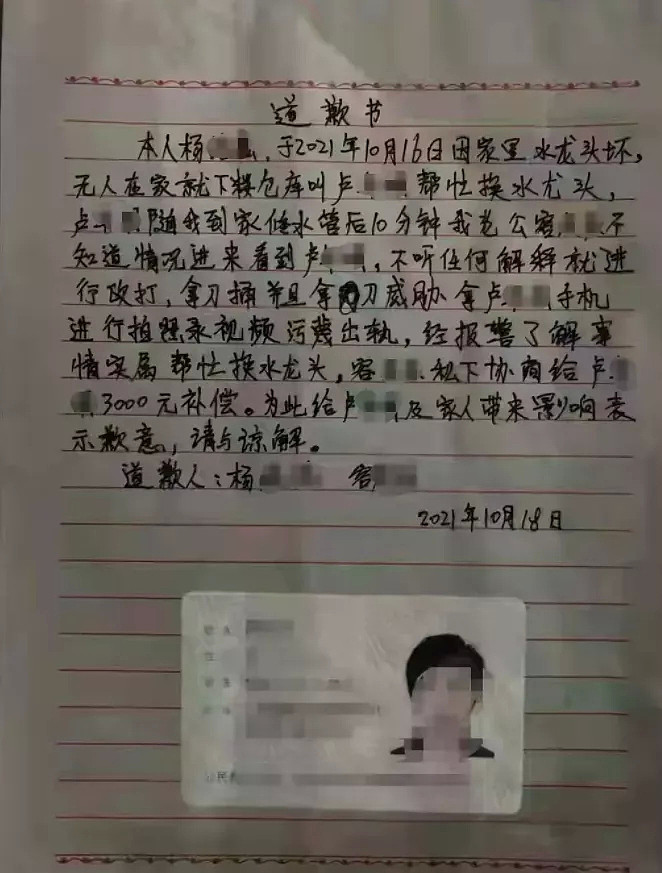 道歉书
本人杨 于2021年10月16日因家里水龙头坏,
无人在家就下楼仓库叫卢 帮忙换水龙头,
卢 随我到家修水管后10分钟我老公容 不
知道情况进来看到卢 , 不听任何解释就进
行攻打, 拿刀捅并且拿 刀威胁拿卢 手机
进行拍照录视频污蔑出轨, 经报警了解事
情实属帮忙换水龙头, 容 私下协商给卢
3000元补偿。为此给卢 及家人带来影响表
示歉意, 请与谅解。
道歉人:杨 容
2021年10月18日